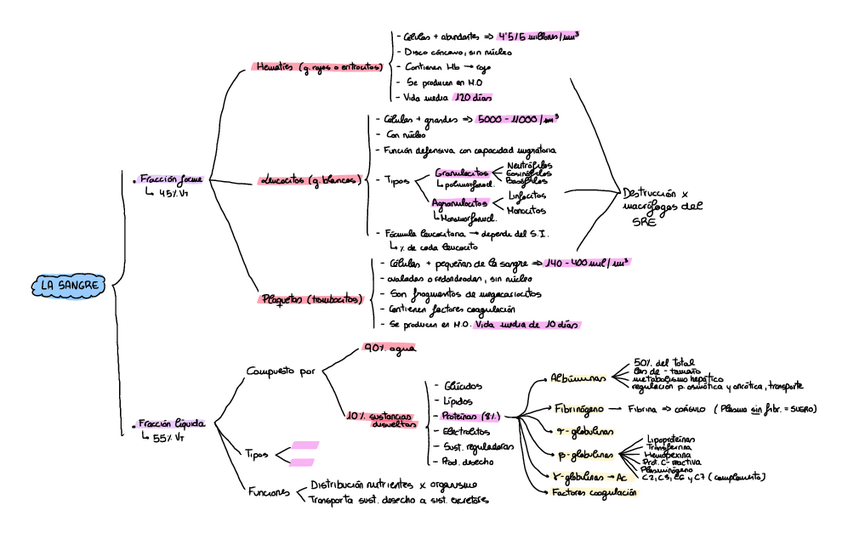 LA SANGRE
• Fracción forme
↳ 45% VT
Hematíes (g. rojos o eritrocitos)
- Células + abundantes => 4'5/5 millones/mm³
- Disco cóncavo, sin núcleo
- Contienen Hb → rojo
- Se producen en M.O
- Vida media 120 días
Leucocitos (g. blancos)
- Células + grandes => 5000 - 11000/mm³
- Con núcleo
- Función defensiva con capacidad migratoria
- Tipos
Granulocitos
↳ polimorfonucl.
Neutrófilos
Eosinófilos
Basófilos
Agranulocitos
↳ Monomorfonucl.
Linfocitos
Monocitos
- Fórmula leucocitaria → depende del S.I.
↳ % de cada leucocito
Plaquetas (trombocitos)
- Células + pequeñas de la sangre => 140 - 400 mil/mm³
- ovaladas o redondeadas, sin núcleo
- Son fragmentos de megacariocitos
- Contienen factores coagulación
- Se producen en M.O. Vida media de 10 días
Destrucción x
macrófagos del
SRE
• Fracción líquida
↳ 55% VT
Compuesto por
90% agua
10% sustancias
disueltas
- Glúcidos
- Lípidos
- Proteínas (8%)
- Electrolitos
- Sust. reguladoras
- Prod. desecho
Albúminas
50% del total
las de - tamaño
metabolismo hepático
regulación p. osmótica y oncótica, transporte
Fibrinógeno → Fibrina => coágulo (Plasma sin fibr. = SUERO)
α-globulinas
β-globulinas
Lipoproteínas
Transferrina
Hemopexina
Prot. C-reactiva
Plasminógeno
C2, C3, C6 y C7 (complemento)
γ-globulinas → Ac
Factores coagulación
Tipos
Funciones
Distribución nutrientes x organismo
Transporta sust. desecho a sist. excretores